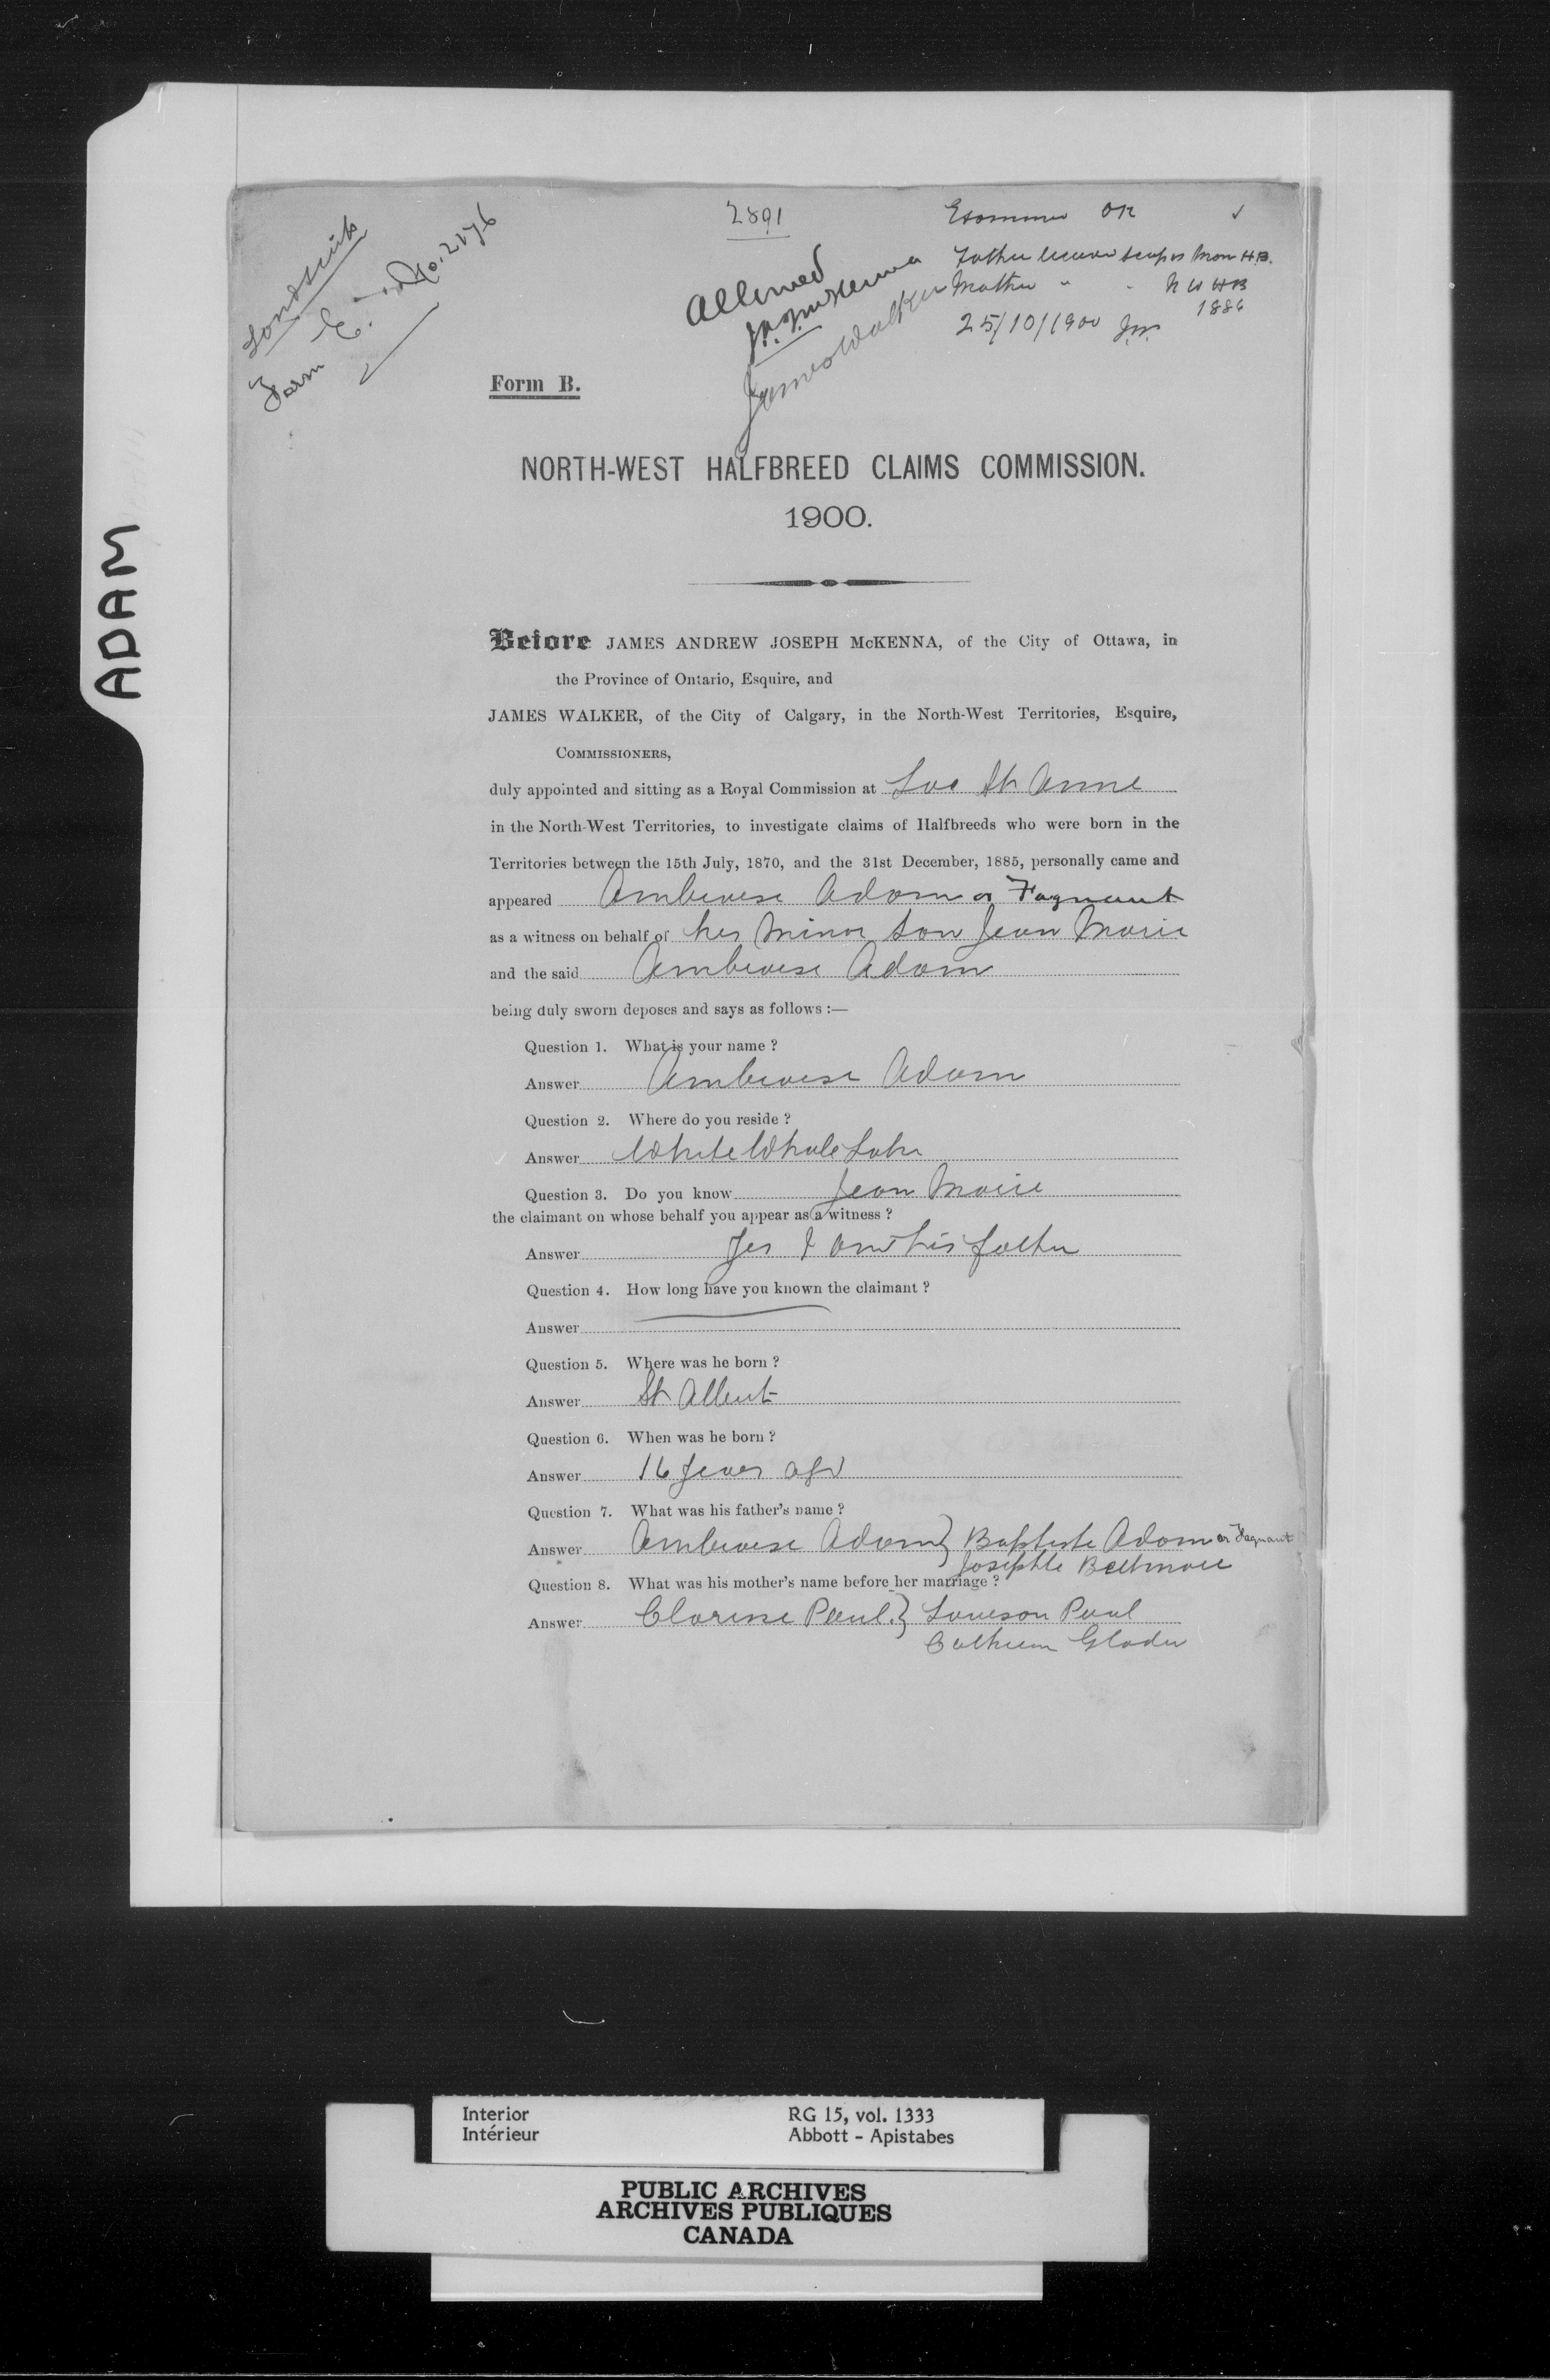 ADAM
Land Scrip
Form E. No. 2176
2891
Allowed
J.A.J. McKenna
James Walker
Examined OK
Father received scrip as Man H.B.
Mother " " N W HB
1886
25/10/1900
Form B.
NORTH-WEST HALFBREED CLAIMS COMMISSION.
1900.
Before JAMES ANDREW JOSEPH McKENNA, of the City of Ottawa, in
the Province of Ontario, Esquire, and
JAMES WALKER, of the City of Calgary, in the North-West Territories, Esquire,
COMMISSIONERS,
duly appointed and sitting as a Royal Commission at Lac St Anne
in the North-West Territories, to investigate claims of Halfbreeds who were born in the
Territories between the 15th July, 1870, and the 31st December, 1885, personally came and
appeared Ambroise Adam or Fagnant
as a witness on behalf of his minor son Jean Marie
and the said Ambroise Adam
being duly sworn deposes and says as follows :—
Question 1. What is your name ?
Answer Ambroise Adam
Question 2. Where do you reside ?
Answer White Whale Lake
Question 3. Do you know Jean Marie
the claimant on whose behalf you appear as a witness ?
Answer Yes I am his father
Question 4. How long have you known the claimant ?
Answer
Question 5. Where was he born ?
Answer St Albert
Question 6. When was he born ?
Answer 16 years ago
Question 7. What was his father's name ?
Answer Ambroise Adam } Baptiste Adam or Fagnant
Josephte
Question 8. What was his mother's name before her marriage ?
Answer Clarisse Paul. } Louison Paul
Interior
Intérieur
RG 15, vol. 1333
Abbott - Apistabes
PUBLIC ARCHIVES
ARCHIVES PUBLIQUES
CANADA